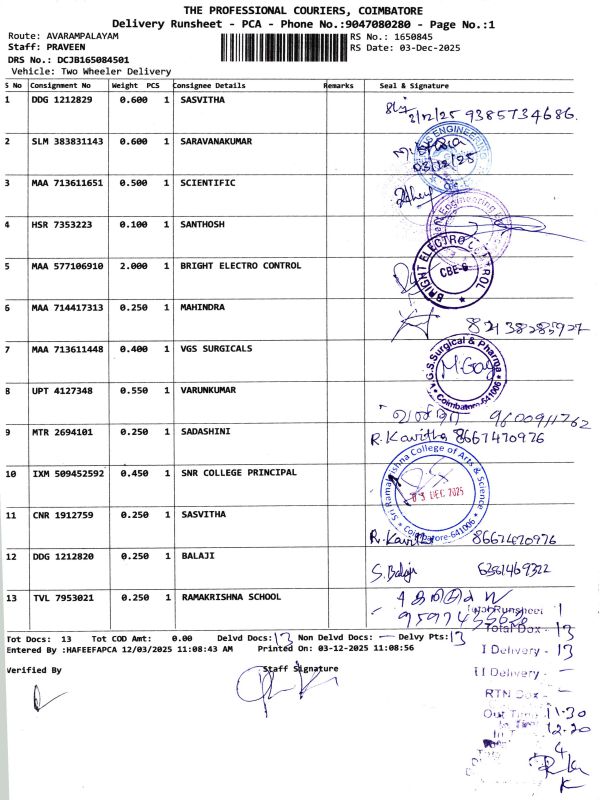 THE PROFESSIONAL COURIERS, COIMBATORE
Delivery Runsheet - PCA - Phone No.:9047080280 - Page No.:1
Route: AVARAMPALAYAM
RS No.: 1650845
Staff: PRAVEEN
RS Date: 03-Dec-2025
DRS No.: DCJB165084501
Vehicle: Two Wheeler Delivery
S No Consignment No Weight PCS Consignee Details Remarks Seal & Signature
1 DDG 1212829 0.600 1 SASVITHA 9385734686.
2 SLM 383831143 0.600 1 SARAVANAKUMAR 03/12/25
3 MAA 713611651 0.500 1 SCIENTIFIC
4 HSR 7353223 0.100 1 SANTHOSH
5 MAA 577106910 2.000 1 BRIGHT ELECTRO CONTROL BRIGHT ELECTRO CONTROL CBE-6
6 MAA 714417313 0.250 1 MAHINDRA
7 MAA 713611448 0.400 1 VGS SURGICALS G.S.Surgical & Pharma Coimbatore-641006
8 UPT 4127348 0.550 1 VARUNKUMAR 9600911762
9 MTR 2694101 0.250 1 SADASHINI R. Kavitha 8667470976
10 IXM 509452592 0.450 1 SNR COLLEGE PRINCIPAL Sri Ramakrishna College of Arts & Science 03 DEC 2025 Coimbatore-641006
11 CNR 1912759 0.250 1 SASVITHA R. Kavitha 8667470976
12 DDG 1212820 0.250 1 BALAJI S. Balaji
13 TVL 7953021 0.250 1 RAMAKRISHNA SCHOOL
Total Runsheet 1
Total Dox - 13
Tot Docs: 13 Tot COD Amt: 0.00 Delvd Docs: 13 Non Delvd Docs: — Delvy Pts: 13
I Delivery - 13
Entered By :HAFEEFAPCA 12/03/2025 11:08:43 AM Printed On: 03-12-2025 11:08:56
Verified By
Staff Signature
II Delivery - —
RTN Dox - —
Out Time 11.30
In Time 12.20